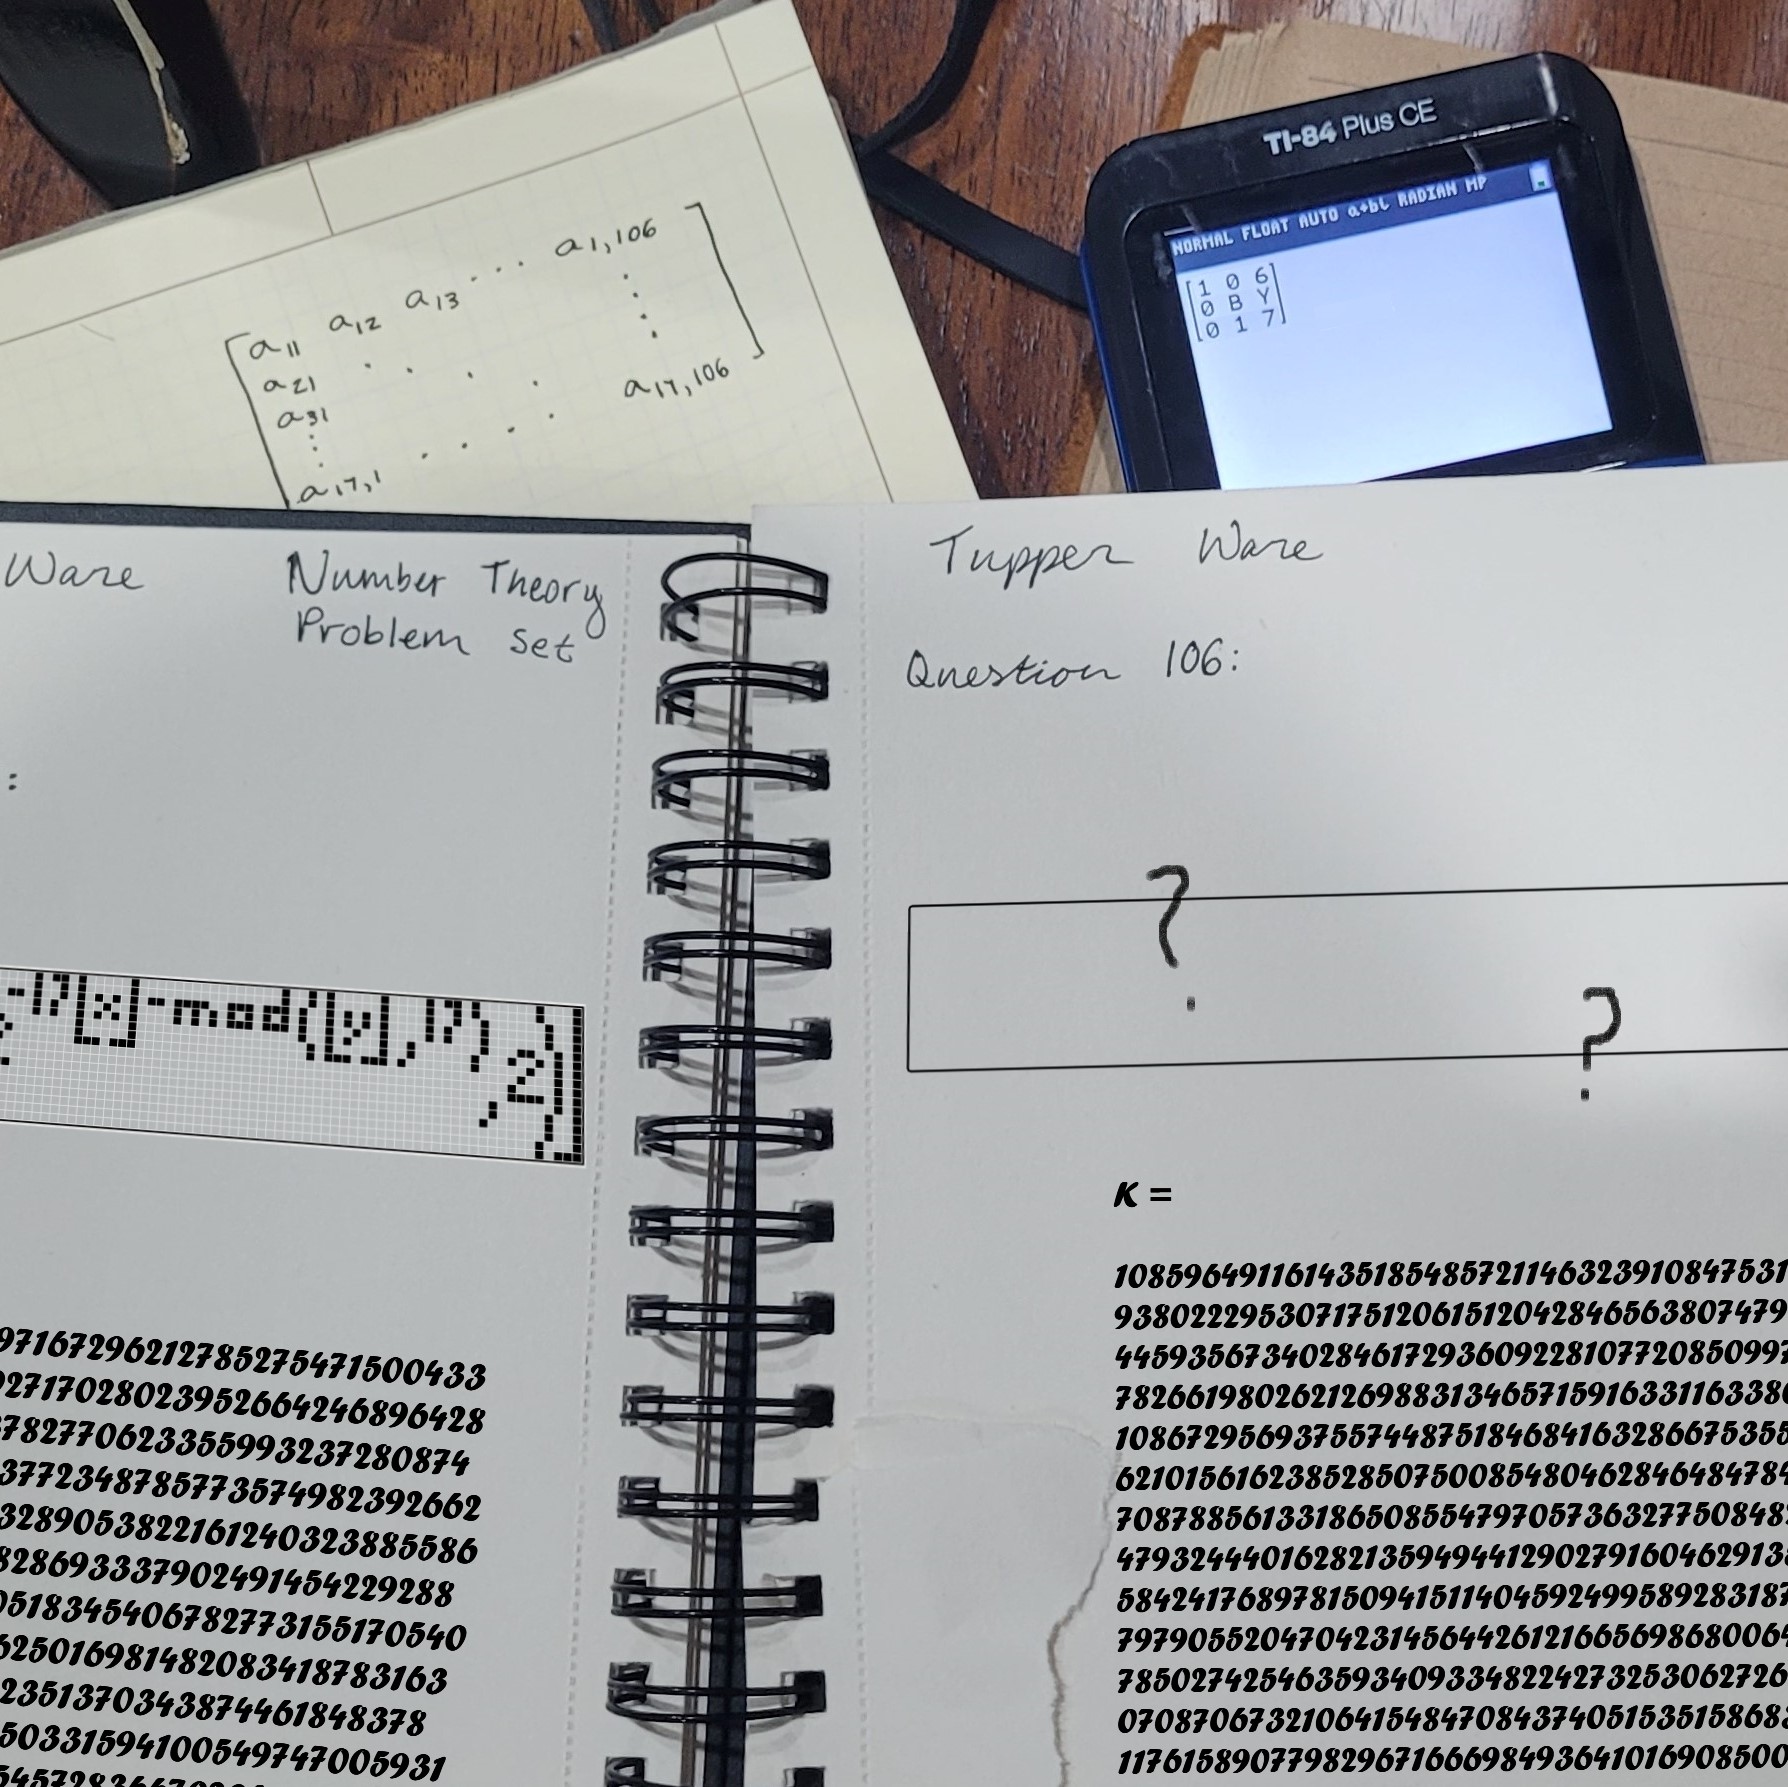 TI-84 Plus CE
NORMAL FLOAT AUTO a+bi RADIAN MP
[1 0 6]
[0 B Y]
[0 1 7]
a11 a12 a13 ... a1,106
a21
a31
a17,1 a17,106
Ware Number Theory
Problem Set
:
-17⌊x⌋-mod(⌊y⌋,17)
,2)
97167296212785275471500433
9271702802395266424689 6428
782770623355993237280874
3772348785773574982392662
3289053822161240323885586
8286933379024914542 29288
0518345406782773155170540
625016981482083418783163
23513703438744618 48378
50331594100549747005931
Tupper Ware
Question 106:
?
?
K =
108596491161435185485721146323910847531
93802229530717512061512042846563807479
4459356734028461729360922810772085099
782661980262126988313465715916331163380
10867295693755744875184684163286675355
62101561623852850750085480462846484784
7087885613318650855479705736327750848
4793244401628213594944129027916046291
58424176897815094151140459249958928318
79790552047042314564426121665698680064
78502742546359340933482242732530627 26
0708706732106415484708437405153515868
117615890779829671666984936410169085 00